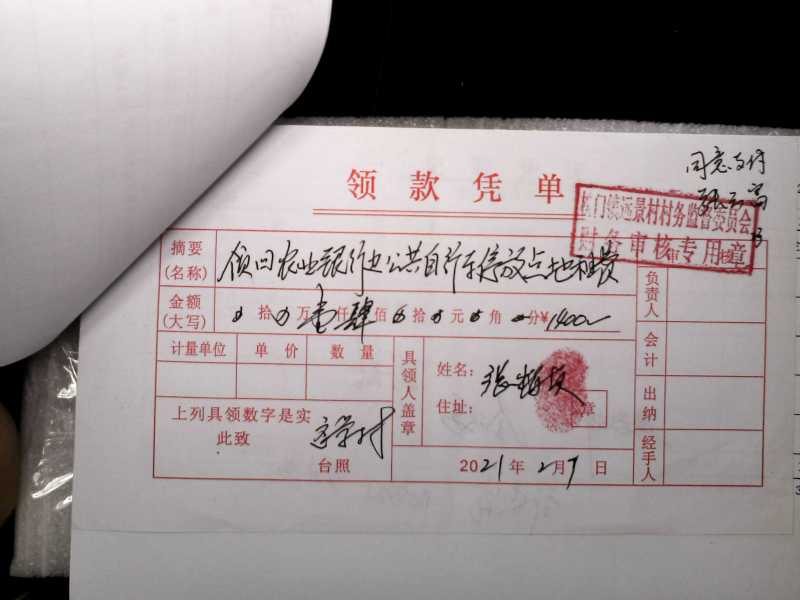 同意支付
领款凭单
村务监督委员会
财务审核专用章
摘要(名称) 领回农业银行边公共自行车停放点地租费
负责人
金额(大写) 拾 万 壹仟 肆佰 拾 元 角 分 ¥1400
会计
计量单位 单价 数量
具领人盖章 姓名: 张
住址: 章
出纳
上列具领数字是实
此致
台照
2021年2月7日
经手人